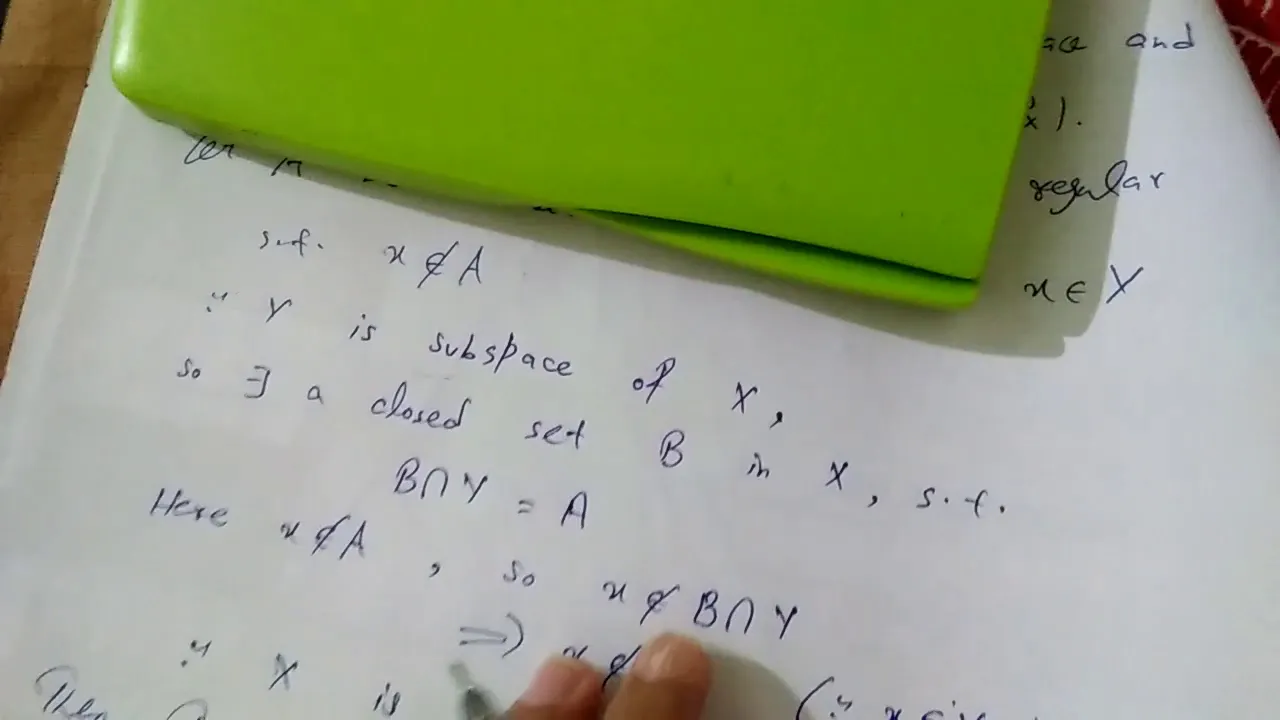 and
regular
x ∈ Y
s.t. x ∉ A
∵ Y is subspace of X,
so ∃ a closed set B in X, s.t.
B∩Y = A
Here x ∉ A, so x ∉ B∩Y
⇒ x ∉
∵ X is
Then